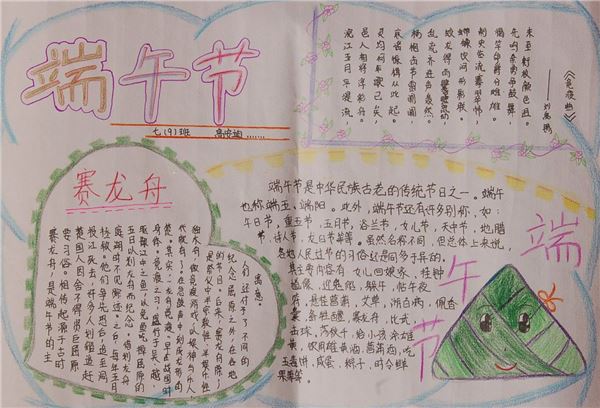 端午节
七(9)班
《竞渡曲》
——刘禹锡
沅江五月平堤流，
邑人相将浮彩舟。
灵均何年歌已矣，
哀谣振楫从此起。
杨桴击节雷阗阗，
乱流齐进声轰然。
蛟龙得雨鬐鬣动，
螮蝀饮河形影联。
刺史临流褰翠帏，
揭竿命爵分雄雌。
先鸣余勇争鼓舞，
未至衔枚颜色沮。
赛龙舟
赛龙舟，是端午节的主
要习俗。相传起源于古时
楚国人因舍不得贤臣屈原
投江死去，许多人划船追赶
拯救。他们争先恐后，追至洞
庭湖时不见踪迹。之后每年五月
五日以划龙舟而纪念。借划龙舟
驱散江中之鱼，以免鱼吃掉屈原的
身体。竞渡之习，盛行于吴、越、
楚。其实，龙舟竞渡早在战国时
代就有了。在急鼓声中划刻成龙形的
独木舟，做竞渡游戏，以娱神与乐人，
是祭仪中半宗教性、半娱乐性
的节目。后来，赛龙舟除
纪念屈原之外，在各地
人们还付于了不同的
寓意。
端午节是中华民族古老的传统节日之一。端午
也称端五、端阳。此外，端午节还有许多别称，如：
午日节，重五节，五月节，浴兰节，女儿节，天中节，地腊
节，诗人节，龙日节等等。虽然名称不同，但总体上来说，
各地人民过节的习俗还是同多于异的。
其主要内容有：女儿回娘家，挂钟
馗像，迎鬼船、躲午，帖午夜
符，悬挂菖蒲，艾草，游百病，佩香
囊，备牲醴，赛龙舟，比武，
击球，荡秋千，给小孩涂雄
黄，饮用雄黄酒，菖蒲酒，吃
五毒饼，咸蛋，粽子，时令鲜
果等等。
端午节